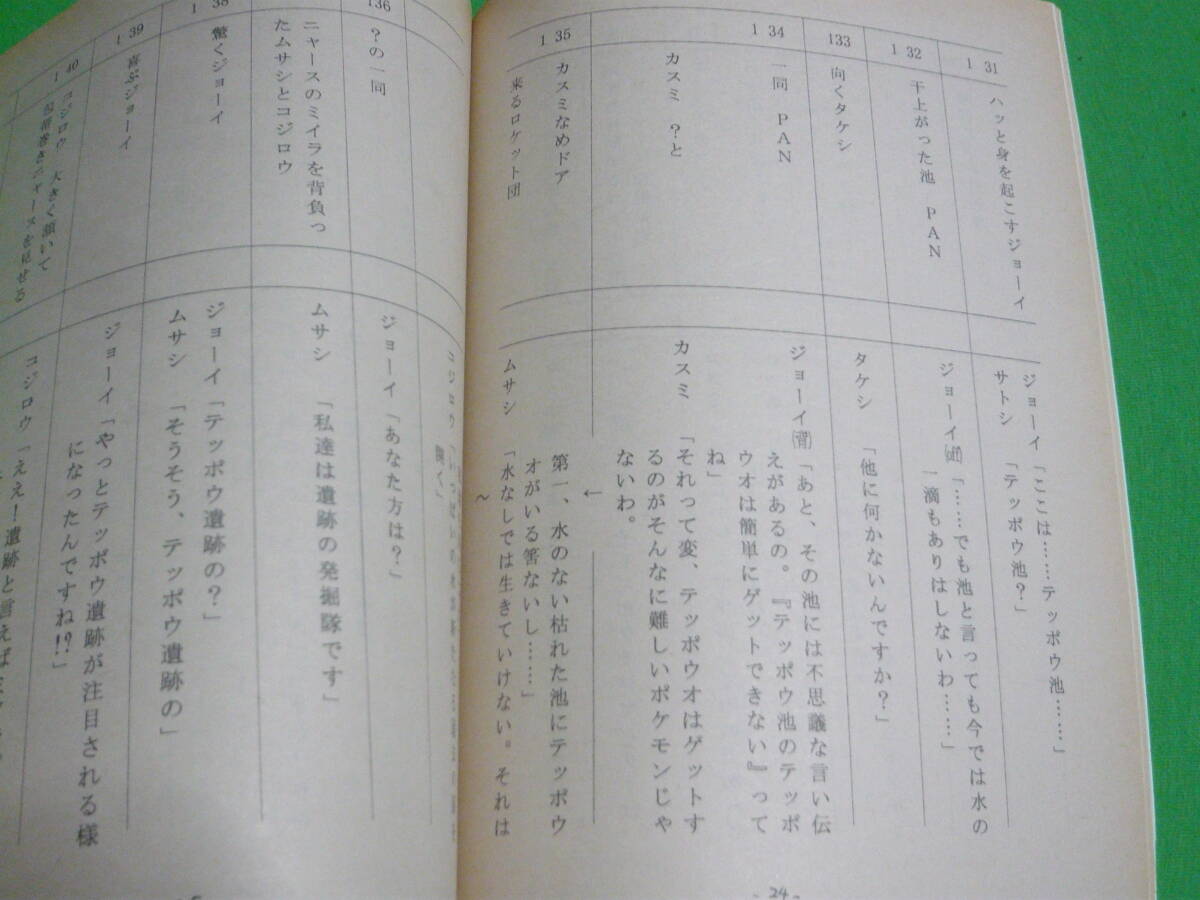 131
ハッと身を起こすジョーイ
ジョーイ「ここは……テッポウ池……」
サトシ「テッポウ池?」
132
干上がった池 PAN
ジョーイ(off)「……でも池と言っても今では水の
一滴もありはしないわ……」
133
向くタケシ
タケシ「他に何かないんですか?」
134
一同 PAN
ジョーイ(背)「あと、その池には不思議な言い伝
えがあるの。『テッポウ池のテッポ
ウオは簡単にゲットできない』って
ね」
カスミ ?と
カスミ「それって変、テッポウオはゲットす
るのがそんなに難しいポケモンじゃ
ないわ。
↓
135
カスミなめドア
第一、水のない枯れた池にテッポウ
オがいる筈ないし……」
来るロケット団
ムサシ「水なしでは生きていけない。それは
〜
- 24 -
コジロウ
136
?の一同
ジョーイ「あなた方は?」
ニャースのミイラを背負っ
たムサシとコジロウ
ムサシ「私達は遺跡の発掘隊です」
138
驚くジョーイ
ジョーイ「テッポウ遺跡の?」
ムサシ「そうそう、テッポウ遺跡の」
139
喜ぶジョーイ
ジョーイ「やっとテッポウ遺跡が注目される様
になったんですね!?」
140
コジロウ 大きく頷いて
包帯巻きニャースを見せる
コジロウ「ええ!遺跡と言えば